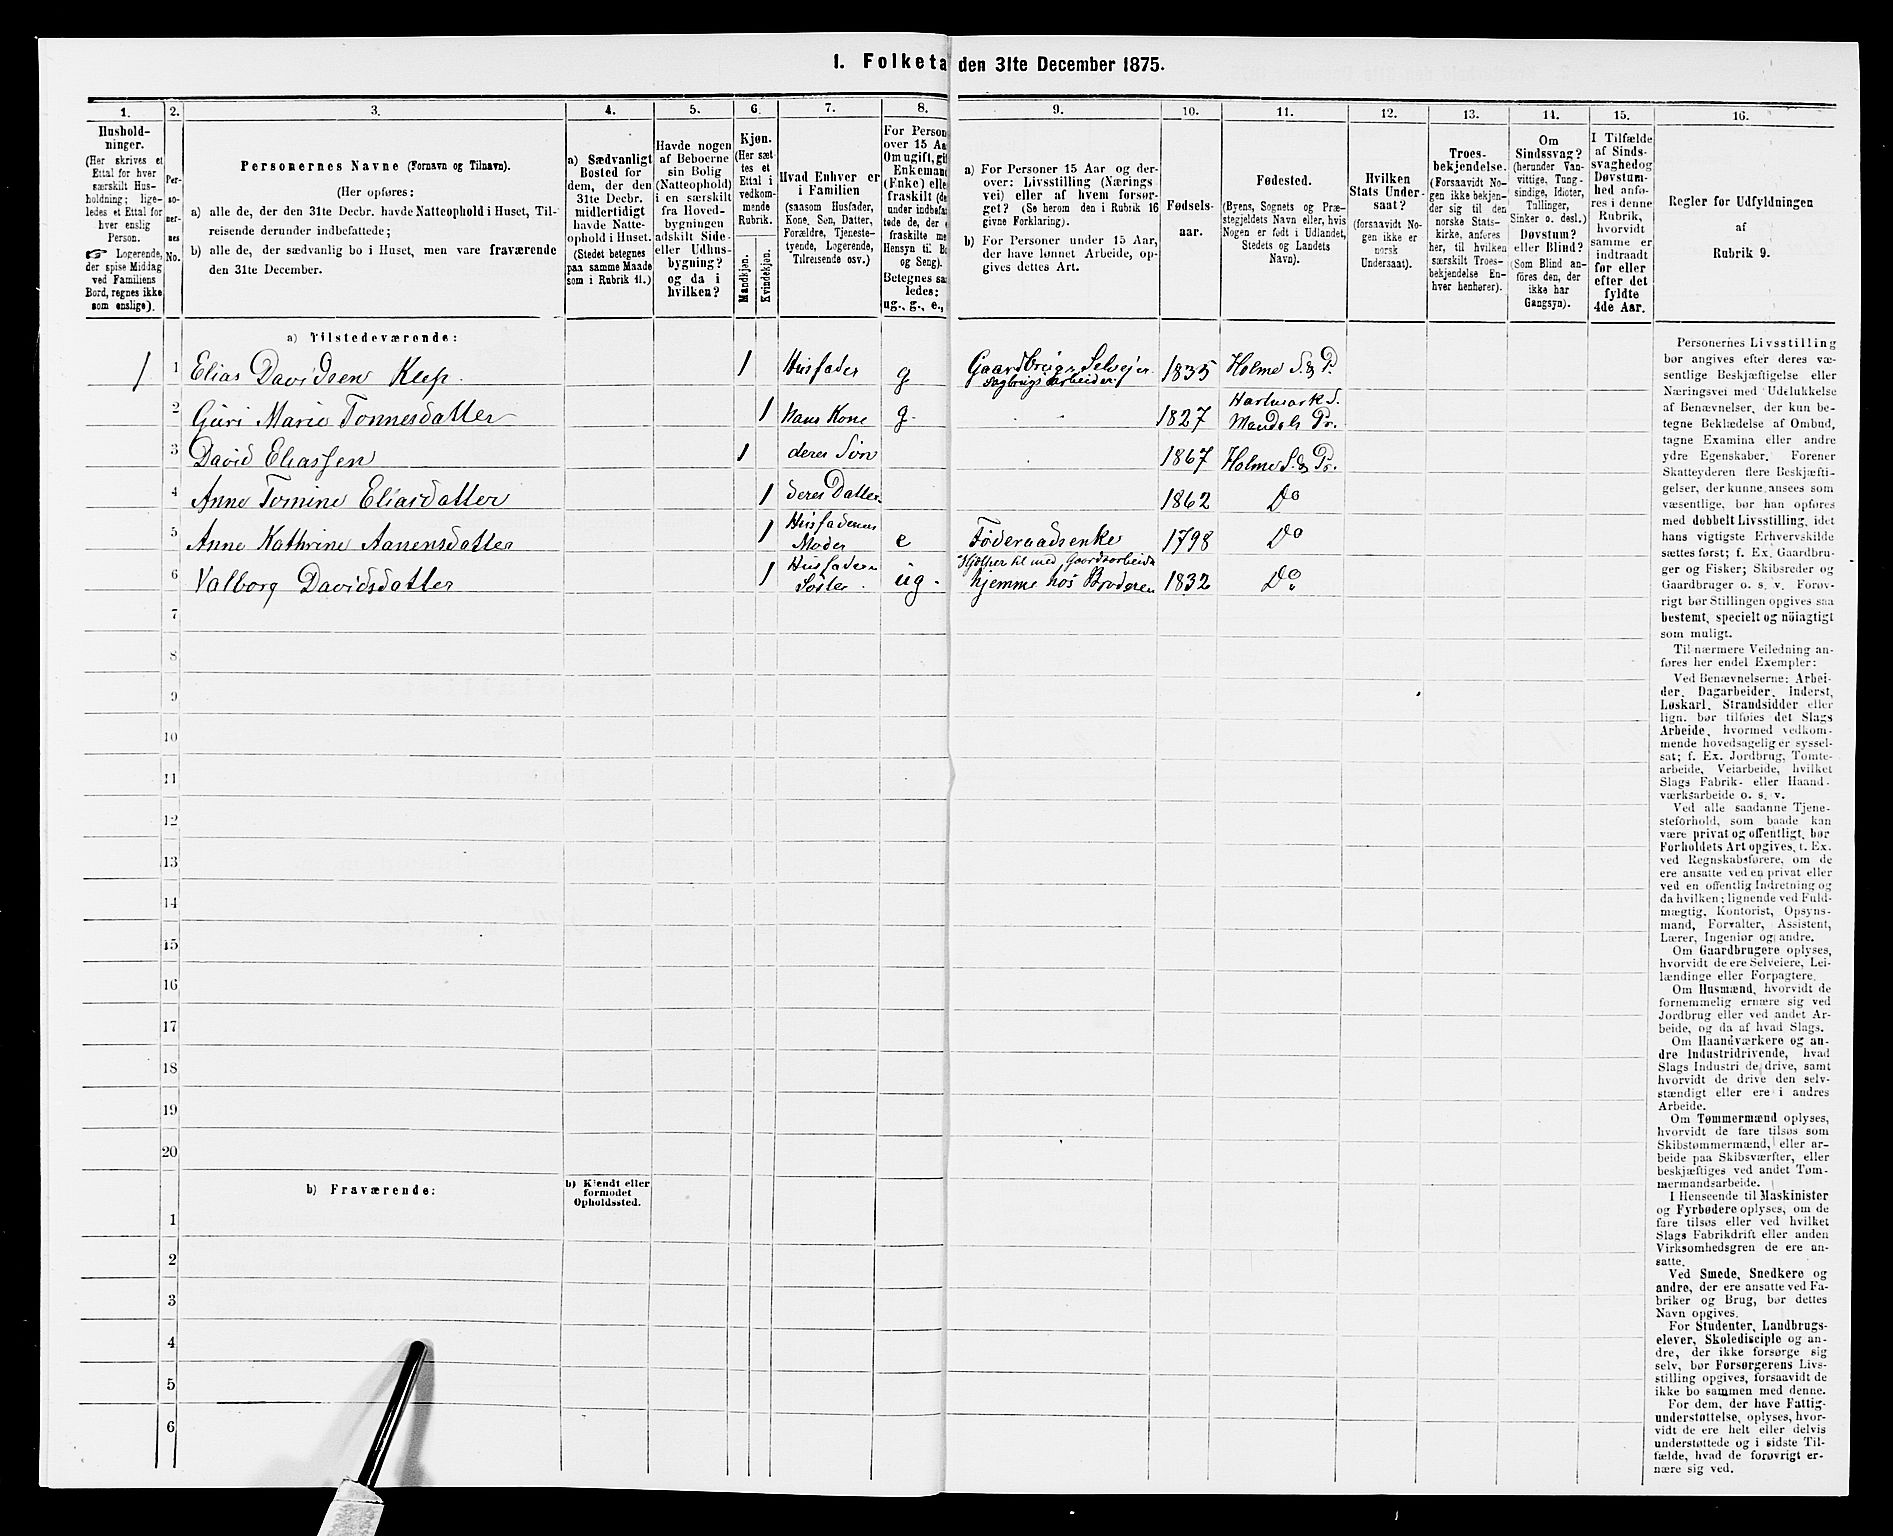 I. Folketa den 31te December 1875.
1. 2. 3. 4. 5. 6. 7. 8. 9. 10. 11. 12. 13. 14. 15. 16.
Hushold-
ninger.
(Her skrives et
Ettal for hver
særskilt Hus-
holdning; lige-
ledes et Ettal for
hver enslig
Person.
☞ Logerende,
der spise Middag
ved Familiens
Bord, regnes ikke
som enslige).
Per-
so-
ner-
nes
No.
Personernes Navne (Fornavn og Tilnavn).
(Her opføres:
a) alle de, der den 31te Decbr. havde Natteophold i Huset, Til-
reisende derunder indbefattede;
b) alle de, der sædvanlig bo i Huset, men vare fraværende
den 31te December.
a) Sædvanligt
Bosted for
dem, der den
31te Decbr.
midlertidigt
havde Natte-
ophold i Huset.
(Stedet betegnes
paa samme Maade
som i Rubrik 11.)
Havde nogen
af Beboerne
sin Bolig
(Natteophold)
i en særskilt
fra Hoved-
bygningen
adskilt Side-
eller Udhus-
bygning?
og da i
hvilken?
Kjøn.
(Her sæt
tes et
Ettal i
vedkom-
mende
Rubrik.
Mandkjøn.
Kvindekjøn.
Hvad Enhver er
i Familien
(saasom Husfader,
Kone, Søn, Datter,
Forældre, Tjeneste-
tyende, Logerende,
Tilreisende osv.)
For Person
over 15 Aa
Om ugift, gif
Enkemand
(Enke) elle
fraskilt (de
under indbefat
tede de, der e
fraskilte me
Hensyn til Bo
og Seng).
Betegnes saa
ledes:
ug., g., e.,
a) For Personer 15 Aar og der-
over: Livsstilling (Nærings
vei) eller af hvem forsør-
get? (Se herom den i Rubrik 16
givne Forklaring).
b) For Personer under 15 Aar,
der have lønnet Arbeide, op-
gives dettes Art.
Fødsels-
aar.
Fødested.
(Byens, Sognets og Præ-
stegjeldets Navn eller, hvis
Nogen er født i Udlandet,
Stedets og Landets
Navn).
Hvilken
Stats Under-
saat?
(forsaavidt No-
gen ikke er
norsk
Undersaat).
Troes-
bekjendelse.
(Forsaavidt No-
gen ikke bekjen-
der sig til den
norske Stats-
kirke, anføres
her, til hvilken
særskilt Troes-
bekjendelse En-
hver henhører).
Om
Sindssvag?
(herunder Van-
vittige, Tung-
sindige, Idioter,
Tullinger,
Sinker o. desl.)
Døvstum?
eller Blind?
(Som Blind an-
føres den, der
ikke har
Gangsyn).
I Tilfælde
af Sinds-
svaghed og
Døvstum-
hed anfø-
res i denne
Rubrik,
hvorvidt
samme er
indtraadt
før eller
efter det
fyldte
4de Aar.
Regler for Udfyldningen
af
Rubrik 9.
a) Tilstedeværende:
1 1 Elias Davidsen Klep. 1 Husfader g Gaardbruger, Selvejer
Sagbrugsarbeider 1835 Holme S. & P.
2 Guri Marie Tonnesdatter 1 hans Kone g. 1827 Hartmark S.
Mandals Pr.
3 David Eliassen 1 deres Søn 1867 Holme S. & Pr.
4 Anne Tomine Eliasdatter 1 deres Datter 1862 Do
5 Anne Kathrine Aanensdatter 1 Husfaderens
Moder e Føderaadsenke 1798 Do
6 Valborg Davidsdatter 1 Husfaderens
Søster ug. Hjælper til med Gaardsarbeide
hjemme hos Broderen 1832 Do
7
8
9
10
11
12
13
14
15
16
17
18
19
20
b) Fraværende:
b) Kjendt eller
formodet
Opholdssted.
1
2
3
4
5
6
Personernes Livsstilling
bør angives efter deres væ-
sentlige Beskjæftigelse eller
Næringsvei med Udelukkelse
af Benævnelser, der kun be-
tegne Beklædelse af Ombud,
tagne Examina eller andre
ydre Egenskaber. Forener
Skatteyderen flere Beskjæfti-
gelser, der kunne ansees som
væsentlige, bør han opføres
med dobbelt Livsstilling, idet
hans vigtigste Erhvervskilde
sættes først; f. Ex. Gaardbru-
ger og Fisker; Skibsreder og
Gaardbruger o. s. v. Forøv-
rigt bør Stillingen opgives saa
bestemt, specielt og nöiagtigt
som muligt.
Til nærmere Veiledning an-
føres her endel Exempler:
Ved Benævnelserne: Arbei-
der, Dagarbeider, Inderst,
Løskarl, Strandsidder eller
lign. bør tilføies det Slags
Arbeide, hvormed vedkom-
mende hovedsagelig er syssel-
sat; f. Ex. Jordbrug, Tomte-
arbeide, Veiarbeide, hvilket
Slags Fabrik- eller Haand-
værksarbeide o. s. v.
Ved alle saadanne Tjene-
steforhold, som baade kan
være privat og offentligt, bør
Forholdets Art opgives, f. Ex.
ved Regnskabsførere, om de
ere ansatte ved en privat eller
ved en offentlig Indretning og
da hvilken; lignende ved Fuld-
mægtig, Kontorist, Opsyns-
mand, Forvalter, Assistent,
Lærer, Ingeniør og andre.
Om Gaardbrugere oplyses,
hvorvidt de ere Selveiere, Lei-
lændinge eller Forpagtere.
Om Husmænd, hvorvidt de
fornemmelig ernære sig ved
Jordbrug eller ved andet Ar-
beide, og da af hvad Slags.
Om Haandværkere og an-
dre Industridrivende, hvad
Slags Industri de drive, samt
hvorvidt de drive den selv-
stændigt eller ere i andres
Arbeide.
Om Tømmermænd oplyses,
hvorvidt de fare tilsøs som
Skibstømmermænd, eller ar-
beide paa Skibsværfter, eller
beskjæftiges ved andet Tøm-
mermandsarbeide.
I Henseende til Maskinister
og Fyrbødere oplyses, om de
fare tilsøs eller ved hvilket
Slags Fabrikdrift eller anden
Virksomhedsgren de ere an-
satte.
Ved Smede, Snedkere og
andre, der ere ansatte ved Fa-
briker og Brug, bør dettes
Navn opgives.
For Studenter, Landbrugs-
elever, Skoledisciple og an-
dre, der ikke forsørge sig
selv, bør Forsørgerens Livs-
stilling opgives, forsaavidt de
ikke bo sammen med denne.
For dem, der have Fattig-
understøttelse, oplyses, hvor-
vidt de ere helt eller delvis
understøttede og i sidste Til-
fælde, hvad de forøvrigt er-
nære sig ved.